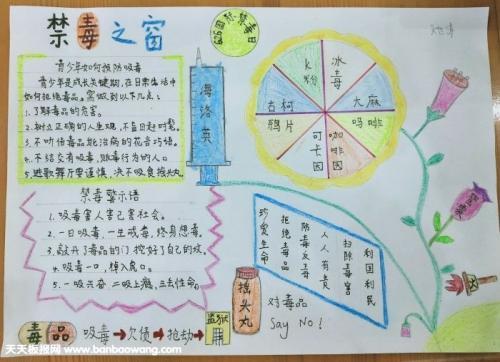 禁毒之窗
6.26国际禁毒日
青少年如何预防吸毒
青少年是成长关键期,在日常生活中
如何拒绝毒品。需做到以下几点:
1.了解毒品的危害。
2.树立正确的人生观,不盲目赶时髦。
3.不听信毒品能治病的花言巧语。
4.不结交有吸毒、贩毒行为的人。
5.进歌舞厅要谨慎,决不吸食摇头丸。
禁毒警示语
1.吸毒害人害己害社会。
2.一日吸毒,一生戒毒,终身想毒。
3.敲开了毒品的门,挖好了自己的坟。
4.吸毒一口,掉入虎口。
5.一吸兴奋 二吸上瘾,三去性命。
毒品 吸毒→欠债→抢劫→监狱
海洛英
K粉
冰毒
大麻
吗啡
咖啡因
可卡因
鸦片
古柯
罂粟
珍爱生命
拒绝毒品
防毒反毒
人人有责
扫除毒害
利国利民
摇头丸
对毒品
Say No!
天天板报网-www.banbaowang.com